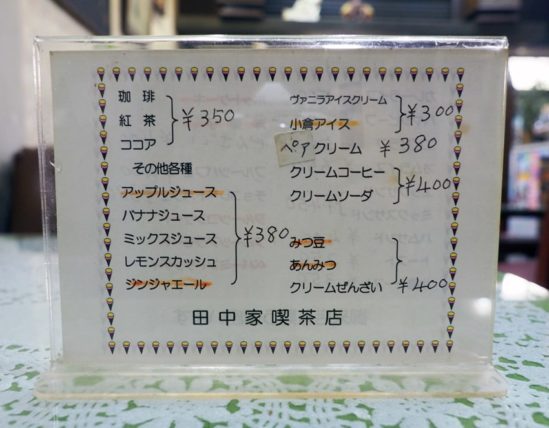 珈琲
紅茶
ココア
¥350
その他各種
アップルジュース
バナナジュース
ミックスジュース
レモンスカッシュ
ジンジャエール
¥380
ヴァニラアイスクリーム
小倉アイス
¥300
ペアクリーム ¥380
クリームコーヒー
クリームソーダ
¥400
みつ豆
あんみつ
クリームぜんざい
¥400
田中家喫茶店